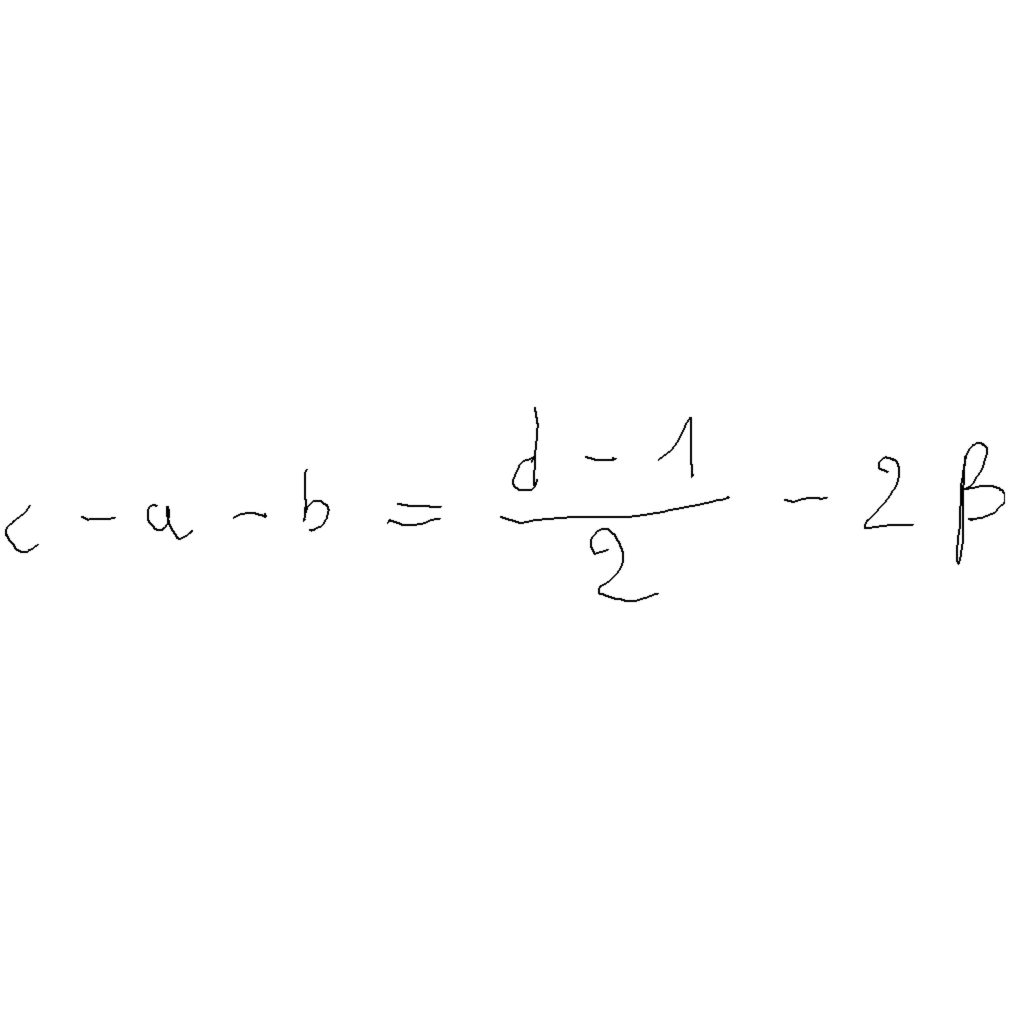 c - a - b = \frac{d - 1}{2} - 2 β